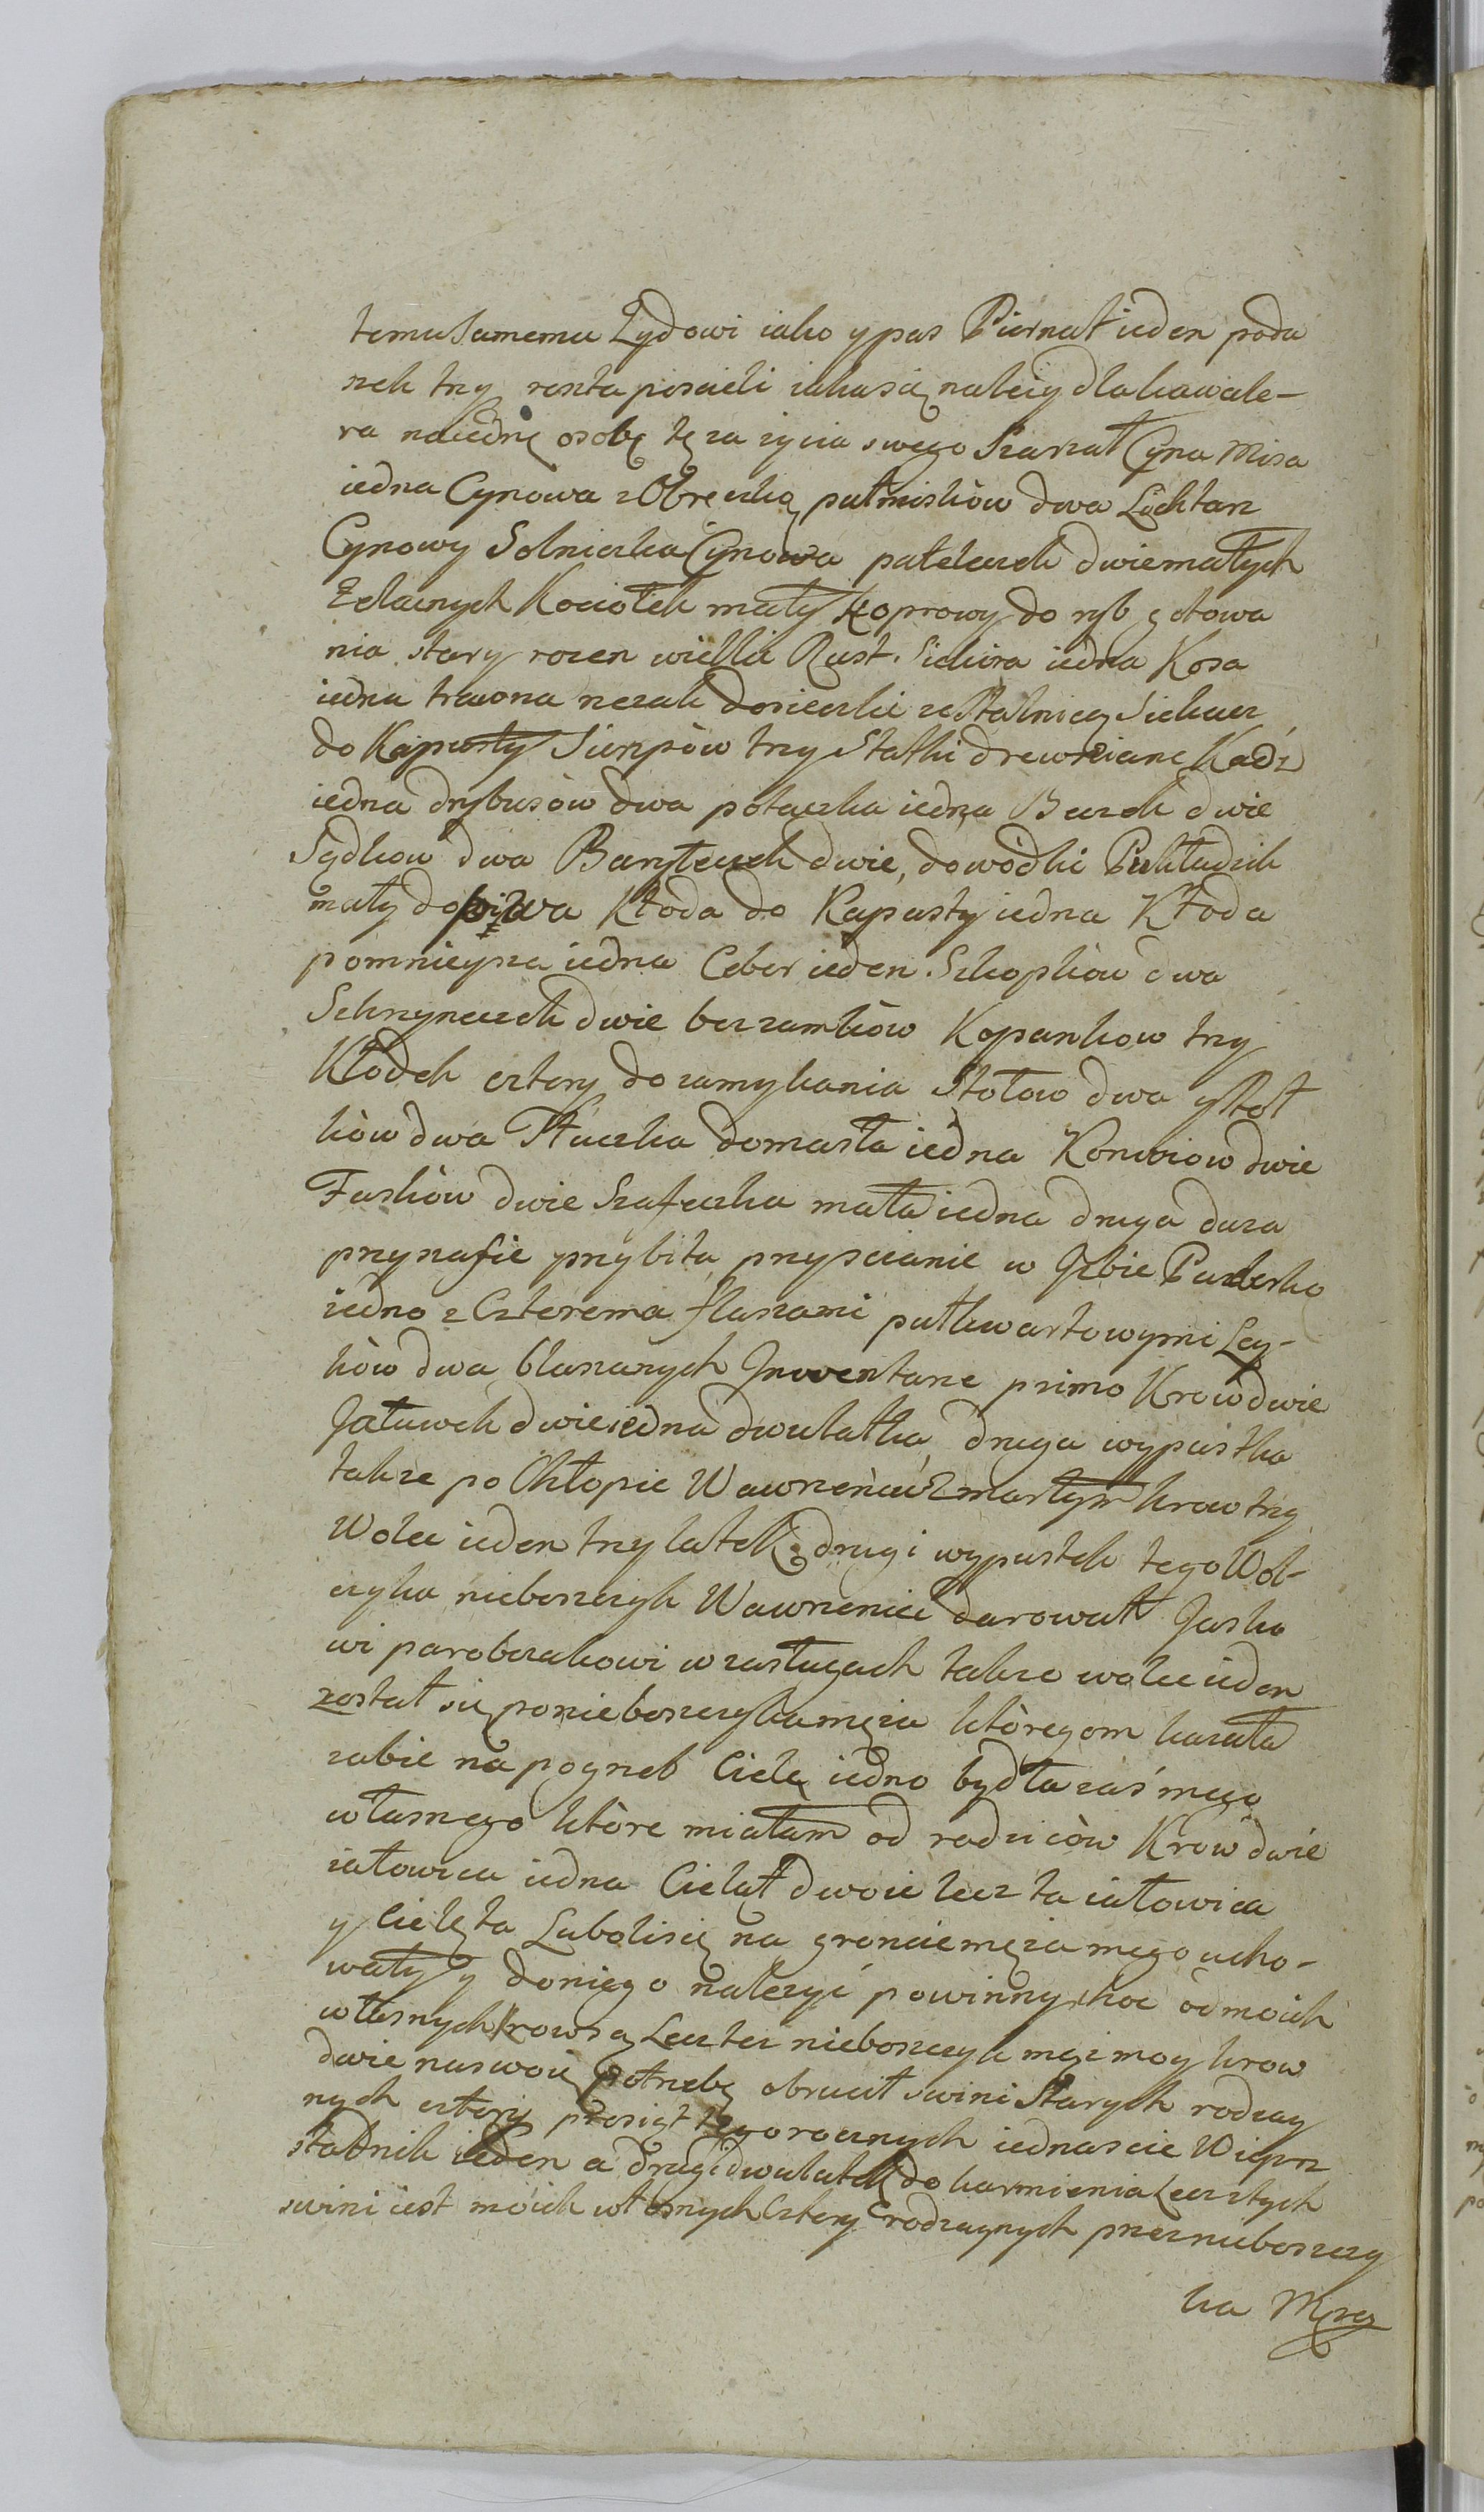 temusamemu Zydowi iako y pas Piernat ieden podu
szek trzy reszta poscieli iaka się nalezy dla kawale-
ra na iednę osobę tę za zycia swego Szarzał Cyna Misa
iedna Cynowa z Obręczką pułmisków dwa Lichtarz
Cynowy Solniczka Cynowa pateleczek dwie małych
Zelaznych Kociołek mały Koprowy do ryb gotowa
nia stary rozen wielki Ruszt. Siekira iedna Kosa
iedna trawna rezak do sieczki ze Stalnicą Siekacz
do Kapusty Sierpów trzy Statki drewniane Kadz
iedna drybusów dwa potaczka iedna Beczek dwie
Sądkow dwa Baryłeczek dwie, do wódki Pukładzik
mały do piwa Kłoda do Kapusty iedna Kłoda
pomnieysza iedna Ceber ieden. Szkopków dwa
Skrzyneczek dwie bez zamków Kopankow trzy
Kłodek cztery do zamykania Stołow dwa y stoł
ków dwa Tłuczka do masła iedna Konwiow dwie
Faszków dwie Szafeczka mała iedna druga duza
przy szafie przybita przy scianie w Jzbie Puzderko
iedno z Czterema flaszami pułkwartowymi Ley-
ków dwa blaszanych Jnwentarze primo Krow dwie
Jałuwek dwie iedna dwulatka, druga wypustka
takze po Chłopie Wawrzeńcu Zmarłym krow trzy
Wolec ieden trzy latek drugi wypustek tego Wol-
czyka nieboszczyk Wawrzeniec darował Jasko
wi parobczakowi w zasługach takze wolec ieden
został się po nieboszczyku męzu którego m kazała
zabic na pogrzeb Cielę iedno bydła zaś mego
własnego które miałam od rodziców Krow dwie
iałowica iedna Cieląt dwoie lecz ta iałowica
y cielęta Lubo li się na groncie męza mego ucho-
wały y do niego nalezyć powinny, choc od moich
własnych krow są Lecz tez nieboszczyk mąz moy krow
dwie na swoię potrzebę obrucił swini Starych rodzay
nych cztery prosiąt tegorocznych iednascie Wieprz
stadnik ieden a drugi dwulatek do karmienia Lecz tych
swini iest moich własnych Cztery rodzaynych przez nieboszczy
ka Męza